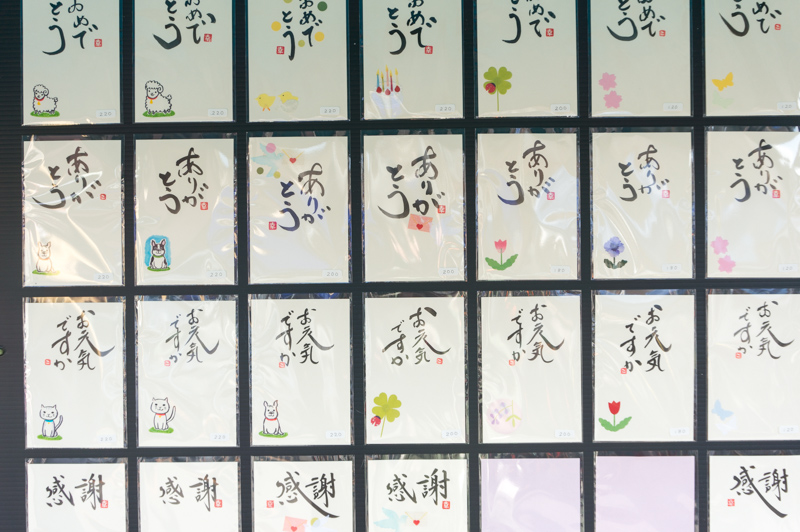 おめで
とう
おめで
とう
おめで
とう
おめで
とう
おめで
とう
おめで
とう
おめで
とう
230
230
230
220
200
ありが
とう
ありが
とう
ありが
とう
ありが
とう
ありが
とう
ありが
とう
ありが
とう
230
230
230
200
お元気
ですか
お元気
ですか
お元気
ですか
お元気
ですか
お元気
ですか
お元気
ですか
お元気
ですか
230
230
感謝
感謝
感謝
感謝
感謝